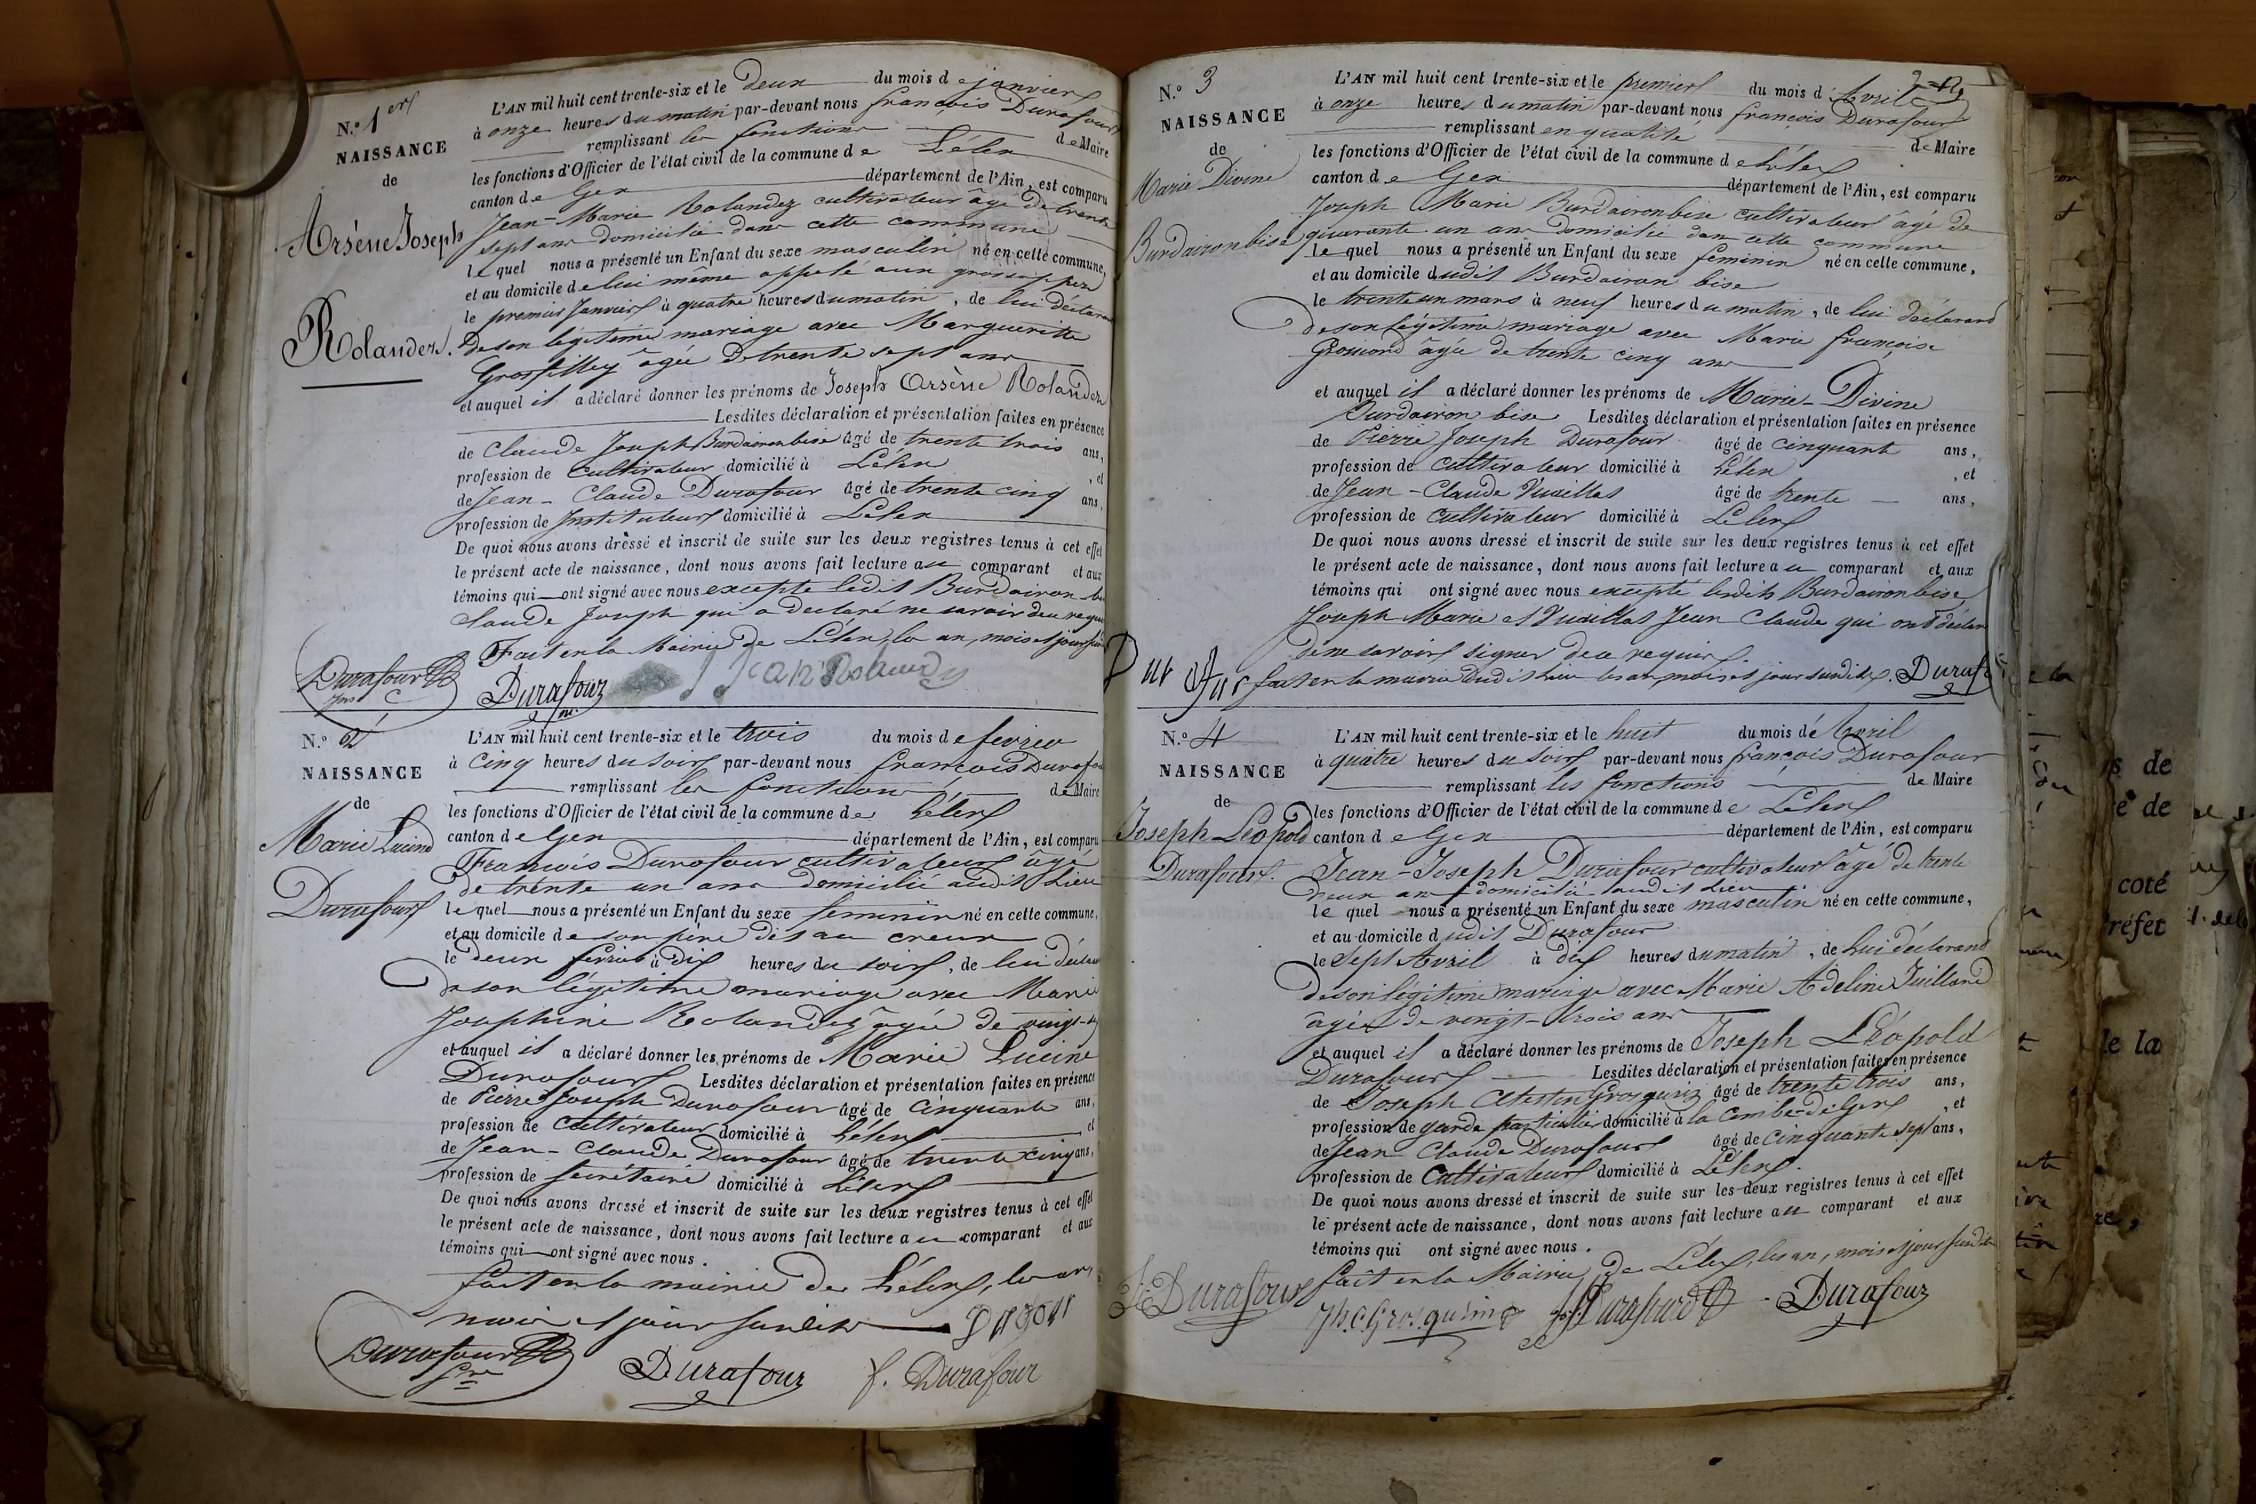 N.º 1er
NAISSANCE
de
Arsène Joseph
Rolandez.
L'AN mil huit cent trente-six et le deux du mois de janvier
à onze heures du matin par-devant nous françois Durafour
remplissant les fonctions de Maire
les fonctions d'Officier de l'état civil de la commune de Lélex
canton de Gex département de l'Ain, est comparu
Jean-Marie Rolandez cultivateur âgé de trente
sept ans domicilié dans cette commune
lequel nous a présenté un Enfant du sexe masculin né en cette commune,
et au domicile de lui même appelé aux
le premier Janvier à quatre heures du matin, de lui déclarant
de son légitime mariage avec Marguerite
Grosfilley âgée de trente sept ans
et auquel il a déclaré donner les prénoms de Joseph Arsène Rolandez
Lesdites déclaration et présentation faites en présence
de Claude Joseph Burdaironbise âgé de trente trois ans,
profession de cultivateur domicilié à Lélex, et
de Jean-Claude Durafour âgé de trente cinq ans,
profession de Instituteur domicilié à Lélex
De quoi nous avons dressé et inscrit de suite sur les deux registres tenus à cet effet
le présent acte de naissance, dont nous avons fait lecture au comparant et aux
témoins qui ont signé avec nous excepté ledit Burdaironbise
Claude Joseph qui a déclaré ne savoir de ce requis
Fait en la Mairie de Lélex, les an, mois et jour
Durafour
Durafour
Jean Rolandez
N.º 2
NAISSANCE
de
Marie Lucine
Durafour
L'AN mil huit cent trente-six et le trois du mois de fevrier
à cinq heures du soir par-devant nous francois Durafour
remplissant les fonctions de Maire
les fonctions d'Officier de l'état civil de la commune de Lélex
canton de Gex département de l'Ain, est comparu
François Durafour cultivateur âgé
de trente un ans domicilié audit Lieu
lequel nous a présenté un Enfant du sexe feminin né en cette commune,
et au domicile de son père dit au creux
le deux fevrier à dix heures du soir, de lui déclarant
de son légitime mariage avec Marie
Josephine Rolandez âgée de vingt-
et auquel il a déclaré donner les prénoms de Marie Lucine
Durafour Lesdites déclaration et présentation faites en présence
de Pierre Joseph Durafour âgé de cinquante ans,
profession de cultivateur domicilié à Lélex et
de Jean-Claude Durafour âgé de trente cinq ans,
profession de secrétaire domicilié à Lélex
De quoi nous avons dressé et inscrit de suite sur les deux registres tenus à cet effet
le présent acte de naissance, dont nous avons fait lecture au comparant et aux
témoins qui ont signé avec nous.
fait en la mairie de Lélex, les an,
mois et jour susdits
Durafour
Durafour
f. Durafour
N.º 3
NAISSANCE
de
Marie Divine
Burdaironbise
L'AN mil huit cent trente-six et le premier du mois d'Avril
à onze heures du matin par-devant nous françois Durafour
remplissant en qualité de Maire
les fonctions d'Officier de l'état civil de la commune de Lélex
canton de Gex département de l'Ain, est comparu
Joseph Marie Burdaironbise cultivateur âgé de
quarante un ans domicilié dans cette commune
lequel nous a présenté un Enfant du sexe feminin né en cette commune,
et au domicile dudit Burdaironbise
le trente un mars à neuf heures du matin, de lui déclarand
de son légitime mariage avec Marie françoise
Grossiord âgée de trente cinq ans
et auquel il a déclaré donner les prénoms de Marie-Divine
Burdaironbise Lesdites déclaration et présentation faites en présence
de Pierre Joseph Durafour âgé de cinquante ans,
profession de cultivateur domicilié à Lélex, et
de Jean-Claude Vuaillat âgé de trente ans,
profession de cultivateur domicilié à Lélex
De quoi nous avons dressé et inscrit de suite sur les deux registres tenus à cet effet
le présent acte de naissance, dont nous avons fait lecture au comparant et aux
témoins qui ont signé avec nous excepté lesdits Burdaironbise
Joseph Marie et Vuaillat Jean Claude qui ont déclaré
de ne savoir signer de ce requis.
fait en la mairie dudit Lieu les an, mois et jour susdits. Durafour
N.º 4
NAISSANCE
de
Joseph Léopold
Durafour.
L'AN mil huit cent trente-six et le huit du mois d'Avril
à quatre heures du soir par-devant nous françois Durafour
remplissant les fonctions de Maire
les fonctions d'Officier de l'état civil de la commune de Lélex
canton de Gex département de l'Ain, est comparu
Jean-Joseph Durafour cultivateur âgé de trente
deux ans domicilié audit Lieu
lequel nous a présenté un Enfant du sexe masculin né en cette commune,
et au domicile dudit Durafour
le Sept Avril à dix heures du matin, de Lui déclarand
de son légitime mariage avec Marie Adeline Juilland
âgée de vingt-trois ans
et auquel il a déclaré donner les prénoms de Joseph Léopold
Durafour Lesdites déclaration et présentation faites en présence
de Joseph Celestin Grosgurin âgé de trente trois ans,
profession de garde particulier domicilié à la Combe-de-Gex, et
de Jean Claude Durafour âgé de cinquante sept ans,
profession de Cultivateur domicilié à Lélex.
De quoi nous avons dressé et inscrit de suite sur les deux registres tenus à cet effet
le présent acte de naissance, dont nous avons fait lecture au comparant et aux
témoins qui ont signé avec nous.
fait en la Mairie de Lélex, les an, mois et jour susdits
Durafour
Jh. c Grosgurin
Durafour
Durafour